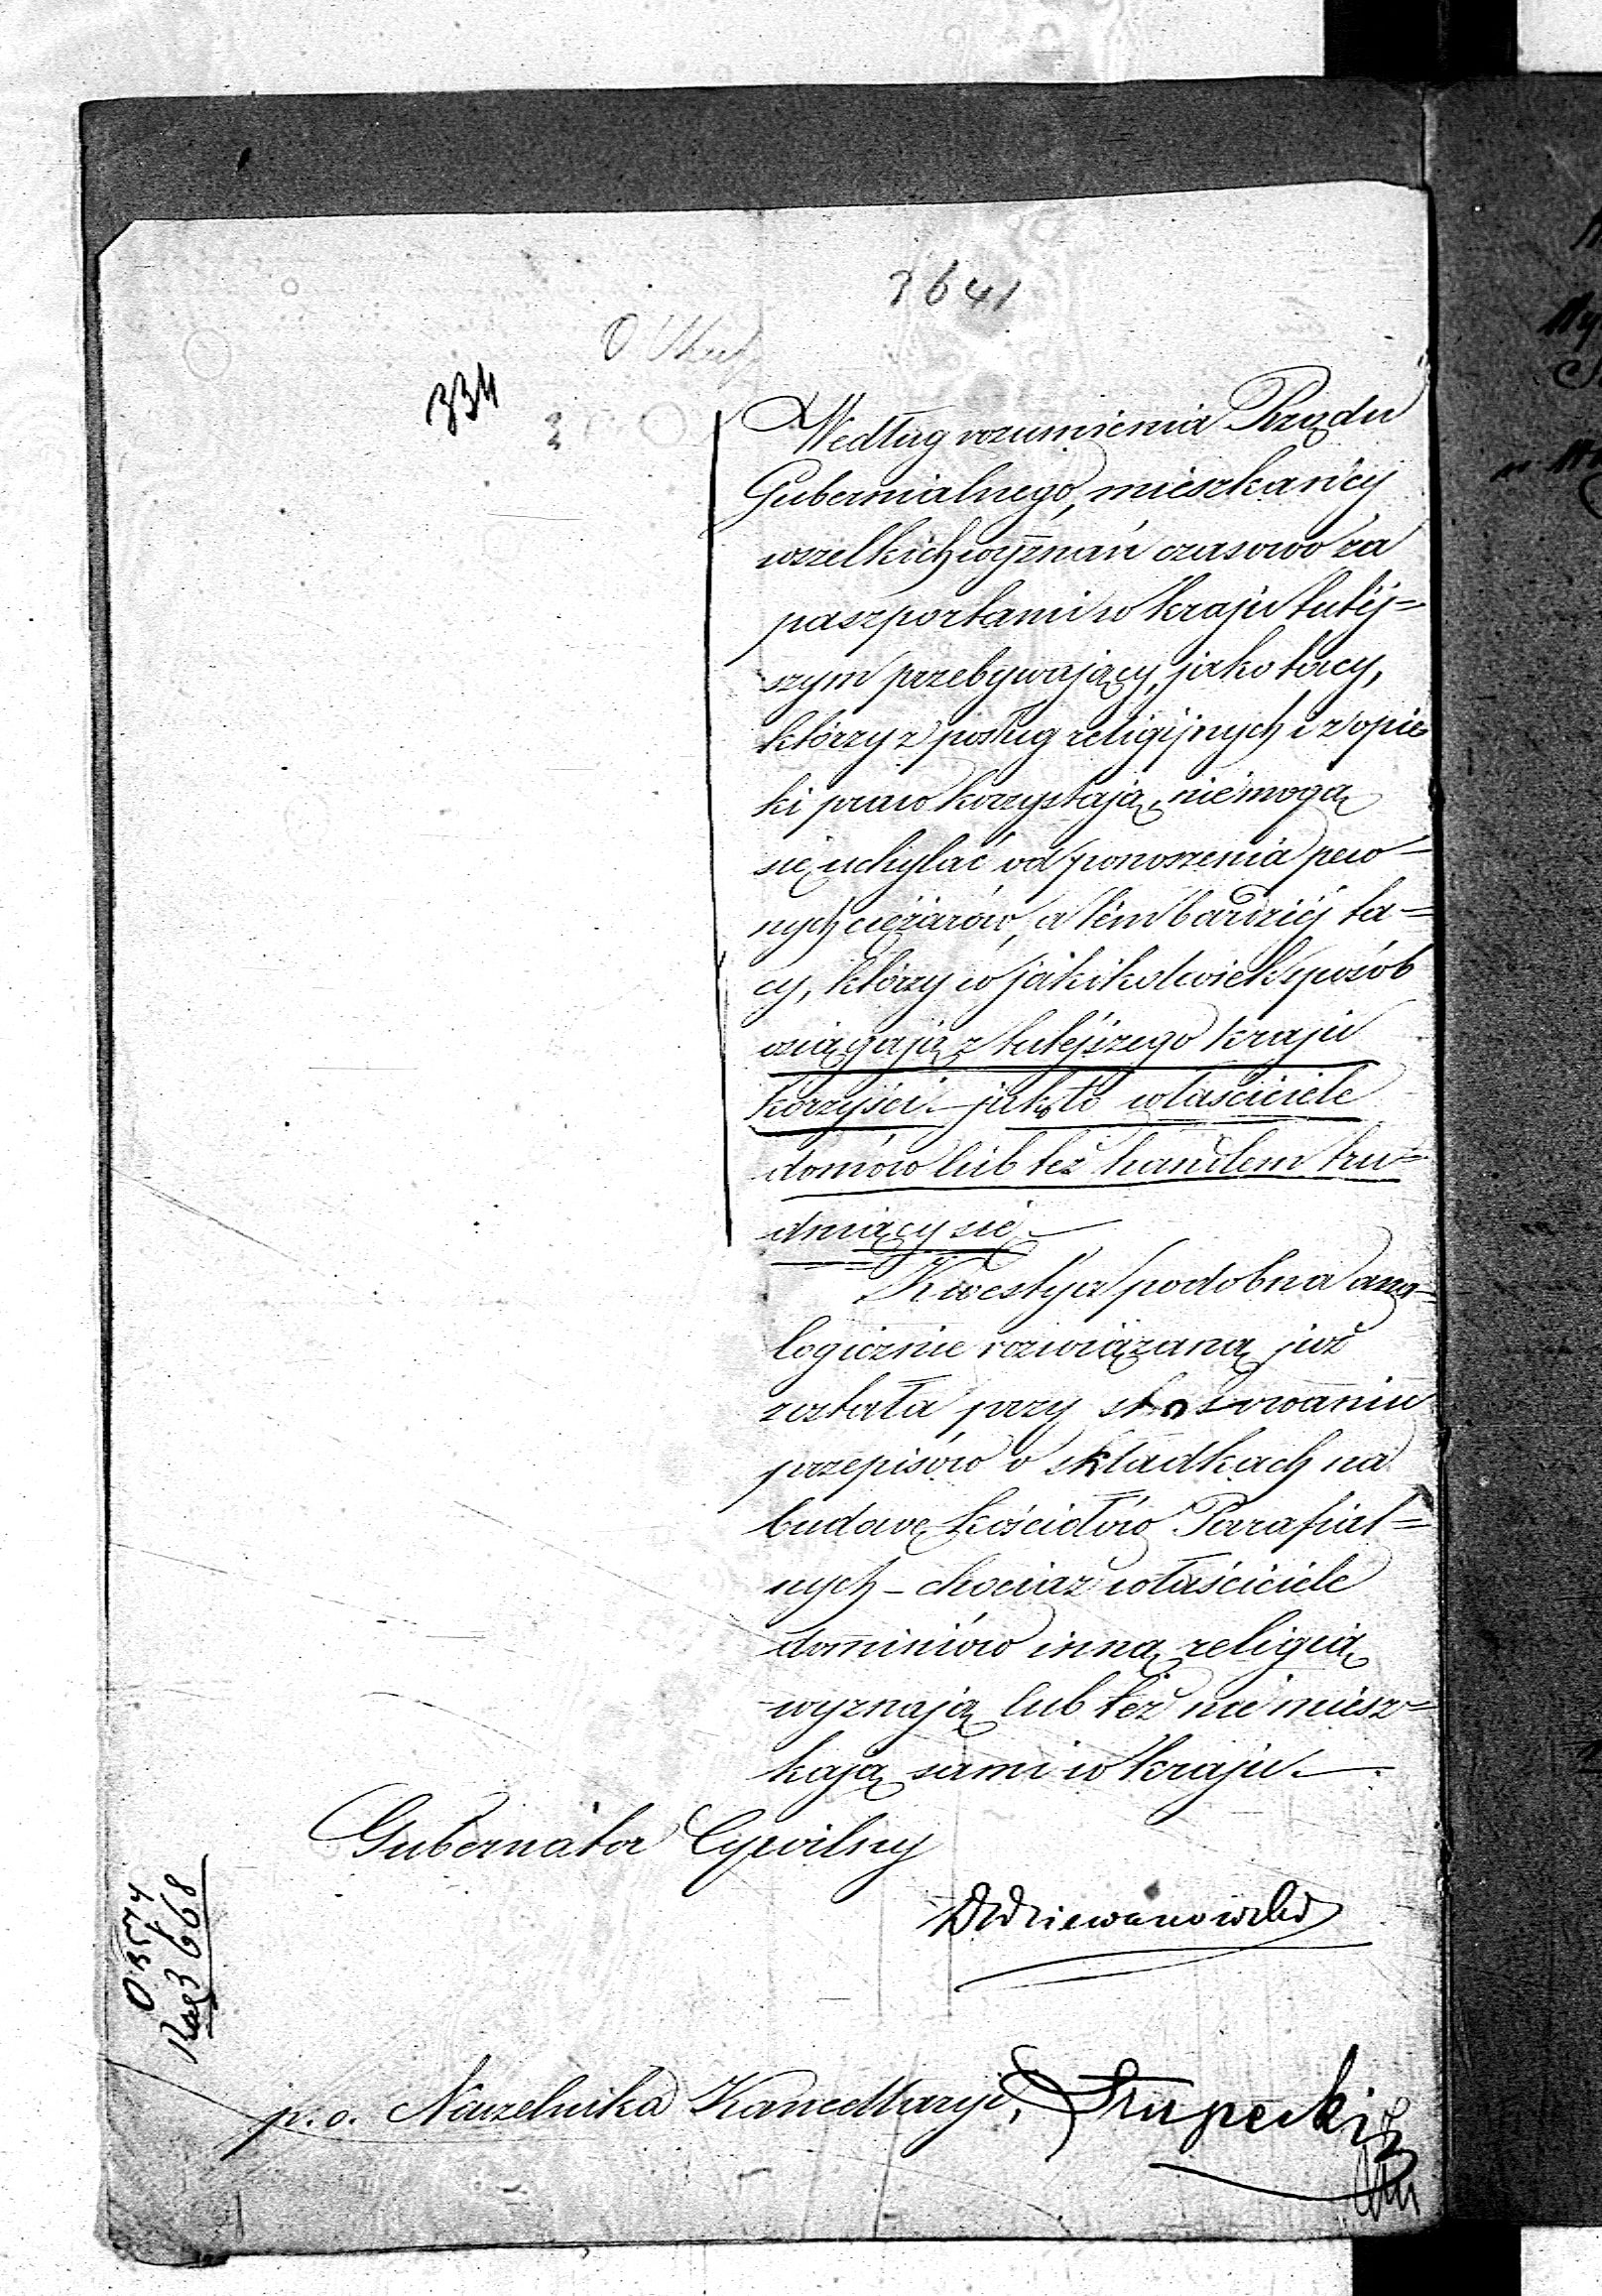 3641
334
Według rozumienia Rządu
Gubernialnego, mieszkańcy
wszelkich wyznań czasowo za
paszportami w kraju tutéj=
szym przebywający, jako tacy,
którzy z posług religijnych i z opie
ki praw korzystają, nie mogą
się uchylać od ponoszenia pew=
nych ciężarów, a tém bardziéj ta=
cy, którzy w jakikolwiek sposób
osiągają z tutéjszego kraju
korzyści – jak to właściciele
domów lub też handlem tru=
dniący się. –
Kwestya podobna ana=
logicznie rozwiązaną już
została przy stosowaniu
przepisów o składkach na
budowę kościołów Parafial=
nych – chociaż właściciele
dominiów inną religią
wyznają lub też nie miesz=
kają sami w kraju. –
Gubernator Cywilny
Dziewanowski
p. o. Naczelnika Kancellaryi, Słupecki